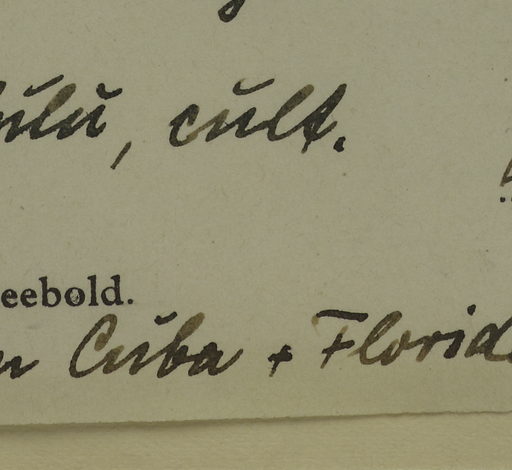 ulu, cult.
eebold.
Cuba + Florid